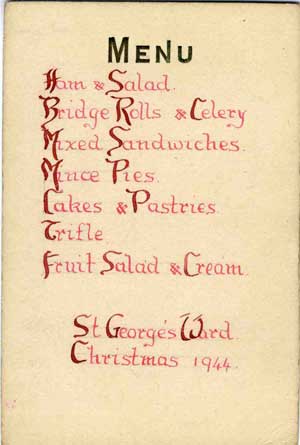 MENU
Ham & Salad.
Bridge Rolls & Celery
Mixed Sandwiches.
Mince Pies.
Cakes & Pastries
Trifle
Fruit Salad & Cream.
St George's Ward.
Christmas 1944.